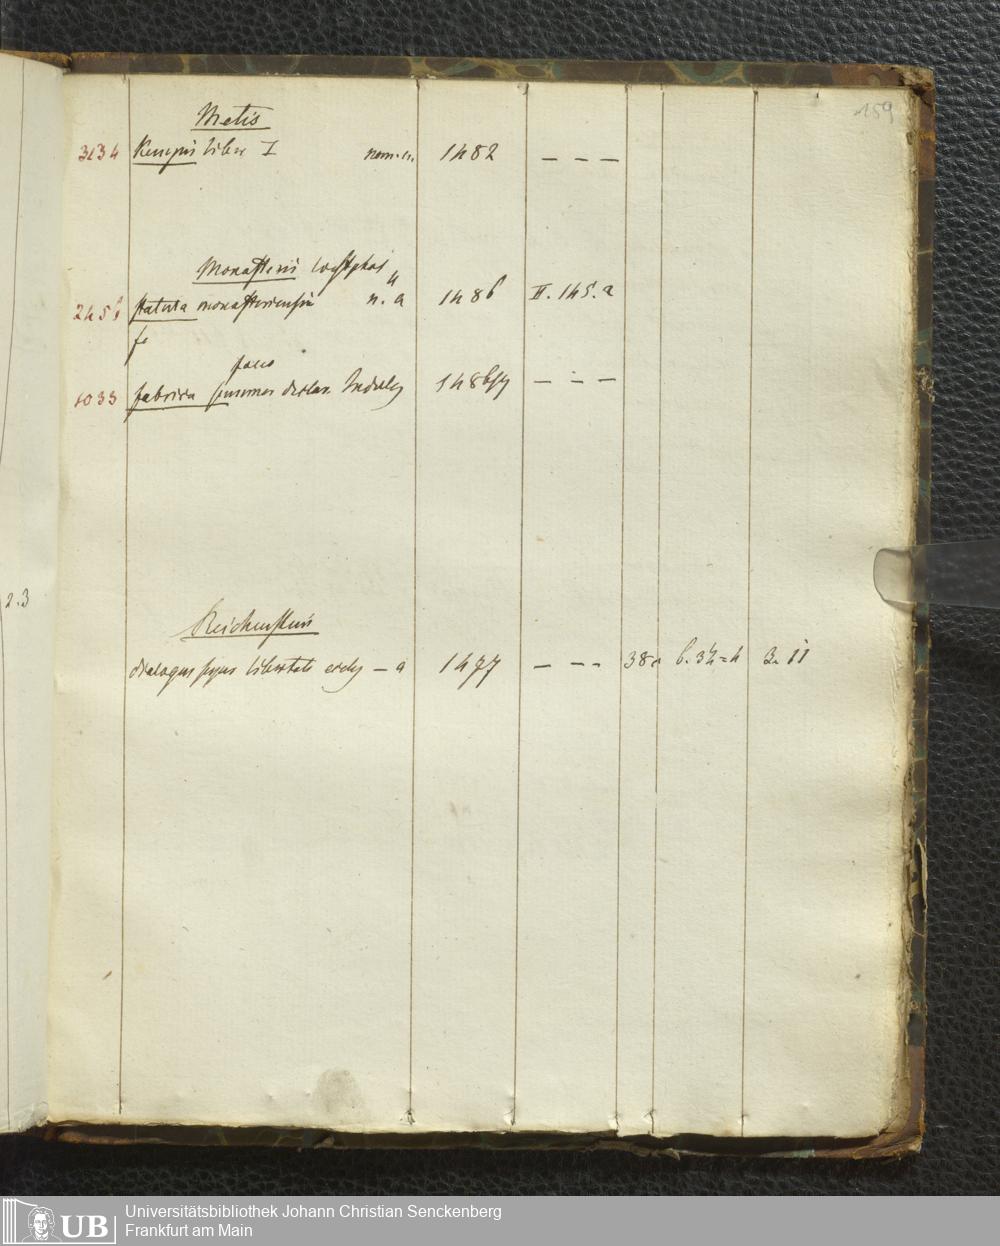 159
Metis
3134 Kempis liber I nom. n. 1482 — — —
Monasterii
2456 statuta monasteriensia n. a 1486 II. 145. a
fabrica
1033 — — —
2.3
Reichenstein
dialogus super libertate eccles — a 1477 — — — 38 b. 34=4 3. 11
UB Universitätsbibliothek Johann Christian Senckenberg
Frankfurt am Main